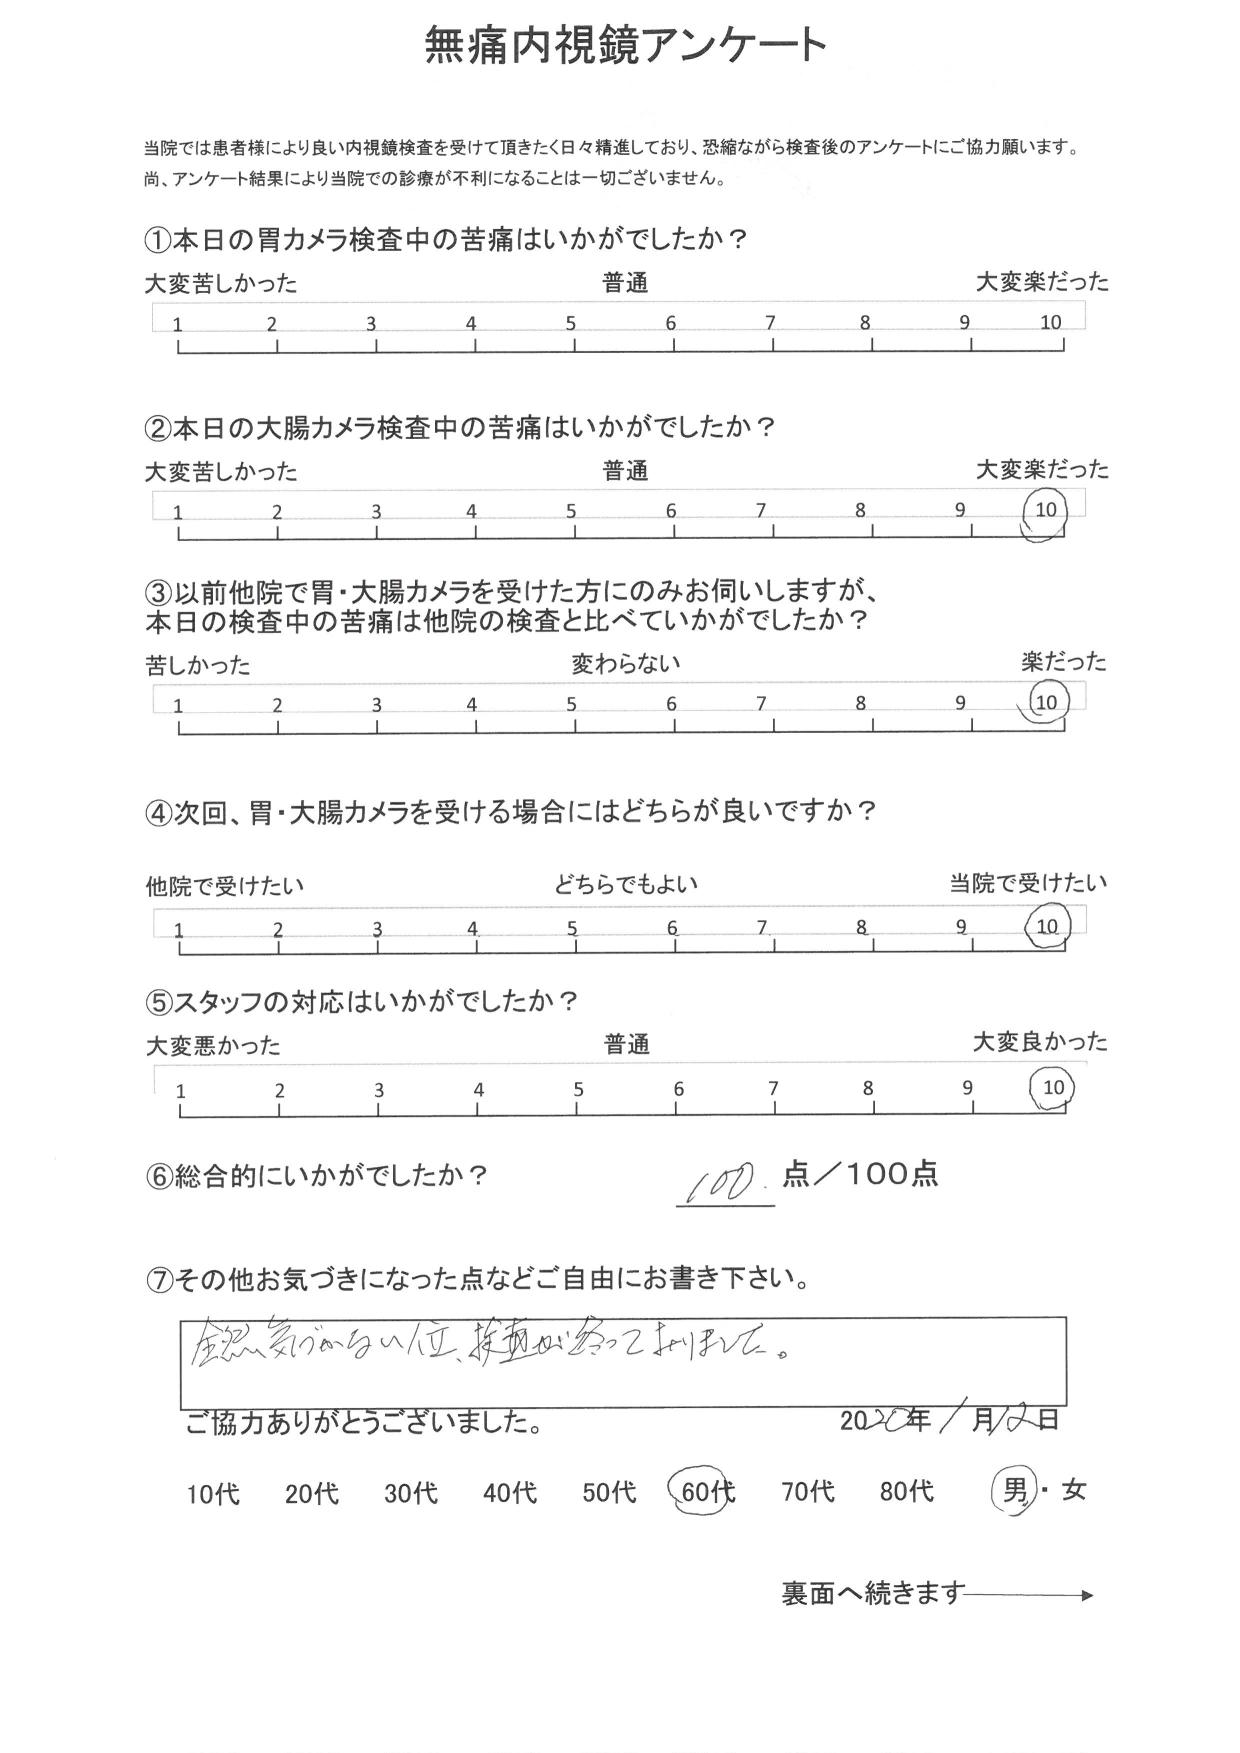 無痛内視鏡アンケート
当院では患者様により良い内視鏡検査を受けて頂きたく日々精進しており、恐縮ながら検査後のアンケートにご協力願います。
尚、アンケート結果により当院での診療が不利になることは一切ございません。
①本日の胃カメラ検査中の苦痛はいかがでしたか？
大変苦しかった 普通 大変楽だった
1 2 3 4 5 6 7 8 9 10
②本日の大腸カメラ検査中の苦痛はいかがでしたか？
大変苦しかった 普通 大変楽だった
1 2 3 4 5 6 7 8 9 10
③以前他院で胃・大腸カメラを受けた方にのみお伺いしますが、
本日の検査中の苦痛は他院の検査と比べていかがでしたか？
苦しかった 変わらない 楽だった
1 2 3 4 5 6 7 8 9 10
④次回、胃・大腸カメラを受ける場合にはどちらが良いですか？
他院で受けたい どちらでもよい 当院で受けたい
1 2 3 4 5 6 7 8 9 10
⑤スタッフの対応はいかがでしたか？
大変悪かった 普通 大変良かった
1 2 3 4 5 6 7 8 9 10
⑥総合的にいかがでしたか？ 100 点／100点
⑦その他お気づきになった点などご自由にお書き下さい。
全然気づかない位、検査が終っておりました。
ご協力ありがとうございました。 2020年1月12日
10代 20代 30代 40代 50代 60代 70代 80代 男・女
裏面へ続きます